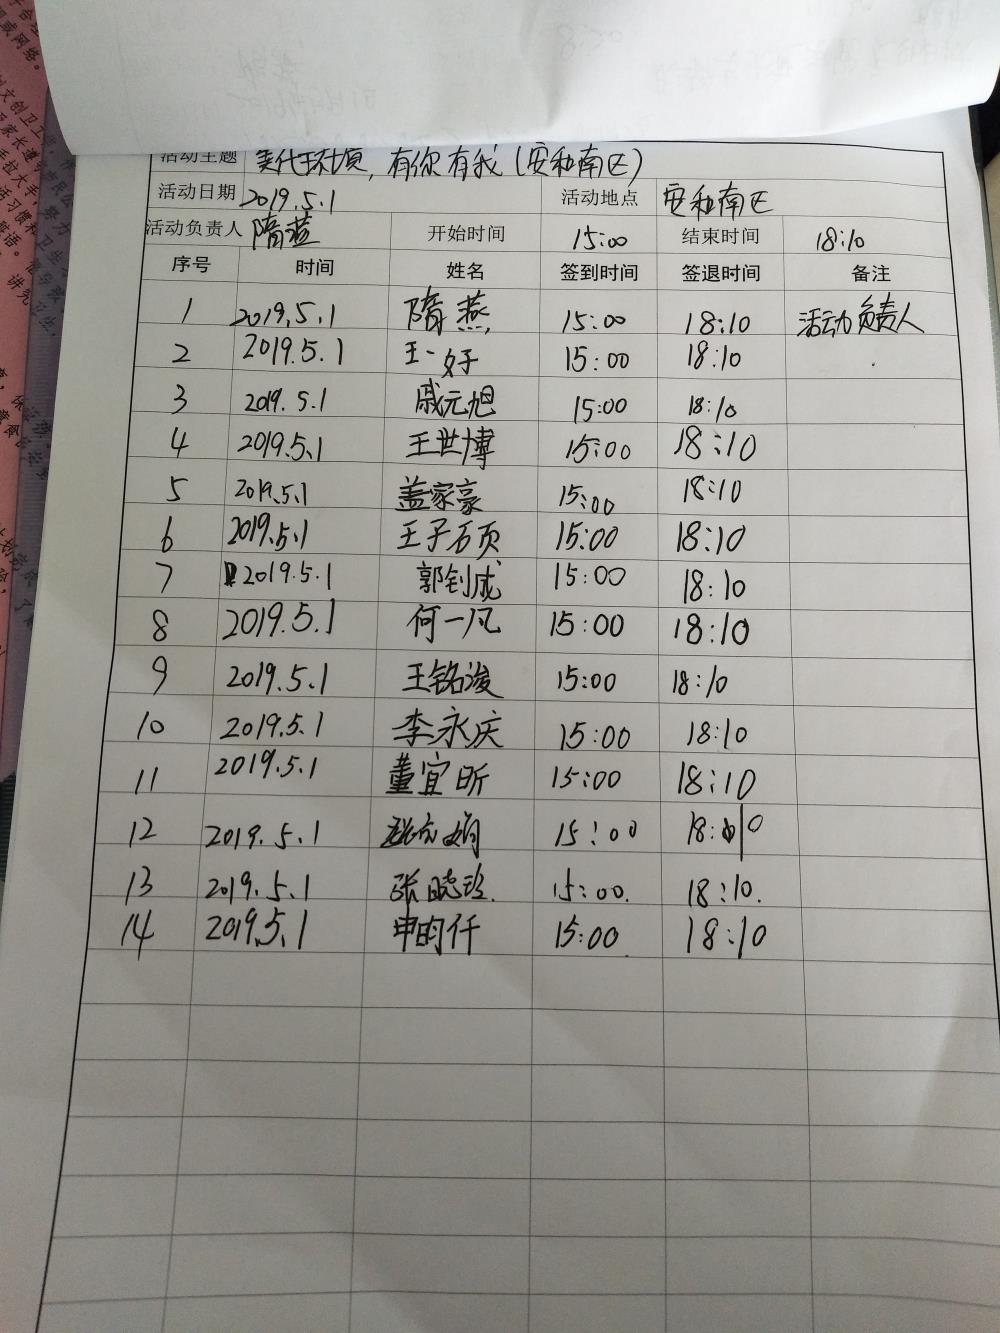 活动主题 美化环境,有你有我(安和南区)
活动日期 2019.5.1 活动地点 安和南区
活动负责人 隋燕 开始时间 15:00 结束时间 18:10
序号 时间 姓名 签到时间 签退时间 备注
1 2019.5.1 隋燕 15:00 18:10 活动负责人
2 2019.5.1 王一好 15:00 18:10
3 2019.5.1 戚元旭 15:00 18:10
4 2019.5.1 王世博 15:00 18:10
5 2019.5.1 盖家豪 15:00 18:10
6 2019.5.1 王子硕 15:00 18:10
7 2019.5.1 郭钊成 15:00 18:10
8 2019.5.1 何一凡 15:00 18:10
9 2019.5.1 王铭浚 15:00 18:10
10 2019.5.1 李永庆 15:00 18:10
11 2019.5.1 董宜昕 15:00 18:10
12 2019.5.1 15:00 18:10
13 2019.5.1 张晓 15:00. 18:10.
14 2019.5.1 申昀仟 15:00 18:10